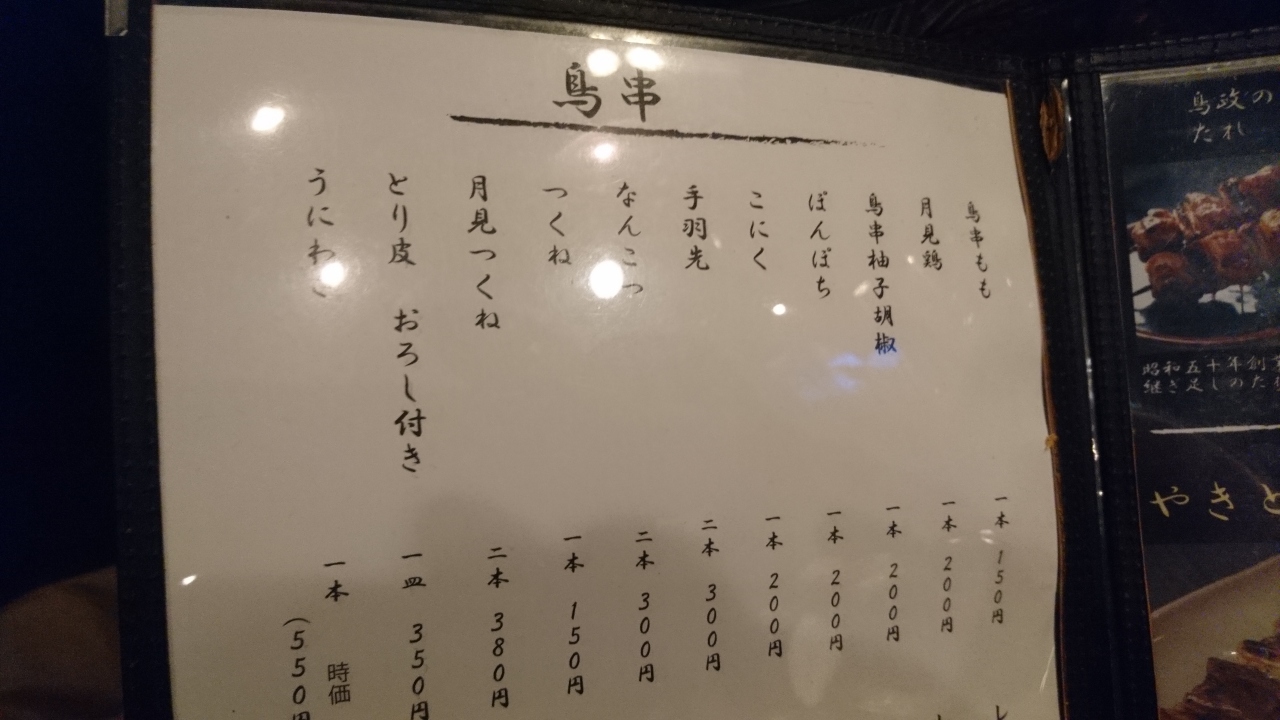 鳥串
鳥串もも 一本 150円
月見鶏 一本 200円
鳥串柚子胡椒 一本 200円
ぼんぼち 一本 200円
こにく 一本 200円
手羽先 二本 300円
なんこつ 二本 300円
つくね 一本 150円
月見つくね 二本 380円
とり皮 おろし付き 一皿 350円
うにわさ 一本 時価
(550円
鳥政の
たれ
昭和五十年創業
継ぎ足しのた
やきと